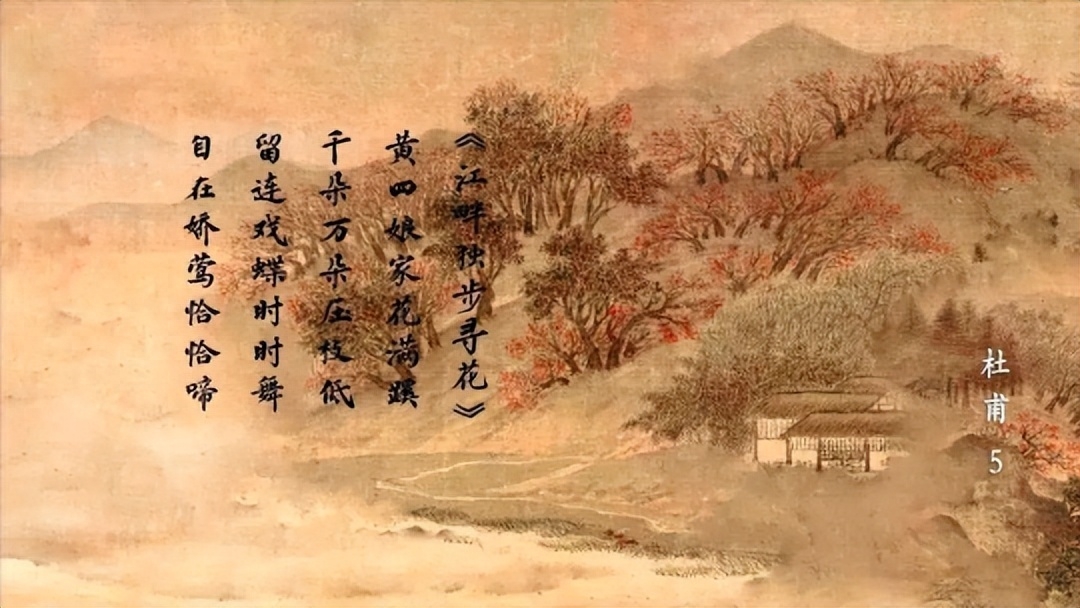 《江畔独步寻花》
黄四娘家花满蹊
千朵万朵压枝低
留连戏蝶时时舞
自在娇莺恰恰啼
杜甫5